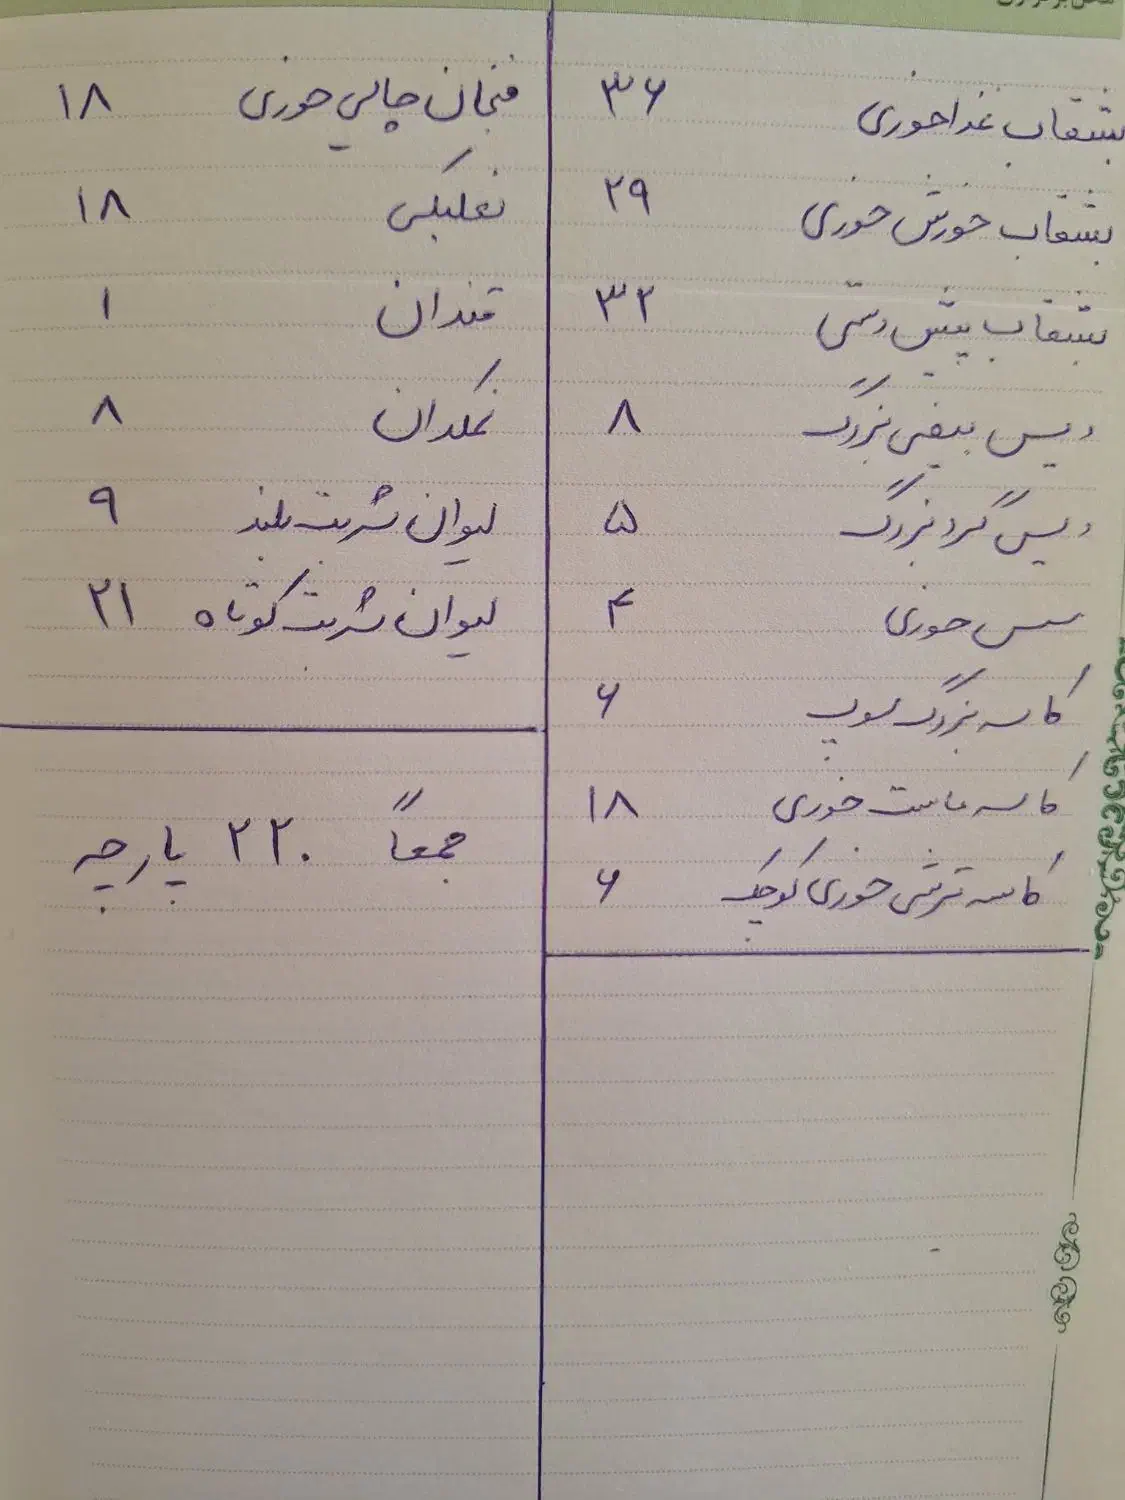 بشقاب غذاخوری ۳۶
بشقاب خورش خوری ۲۹
بشقاب پیش دستی ۳۲
دیس بیضی بزرگ ۸
دیس گرد بزرگ ۵
سس خوری ۴
کاسه بزرگ سوپ ۶
کاسه ماست خوری ۱۸
کاسه ترشی خوری کوچک ۶
فنجان چای خوری ۱۸
نعلبکی ۱۸
قندان ۱
نمکدان ۸
لیوان شربت بلند ۹
لیوان شربت کوتاه ۲۱
جمعاً ۲۲۰ پارچه